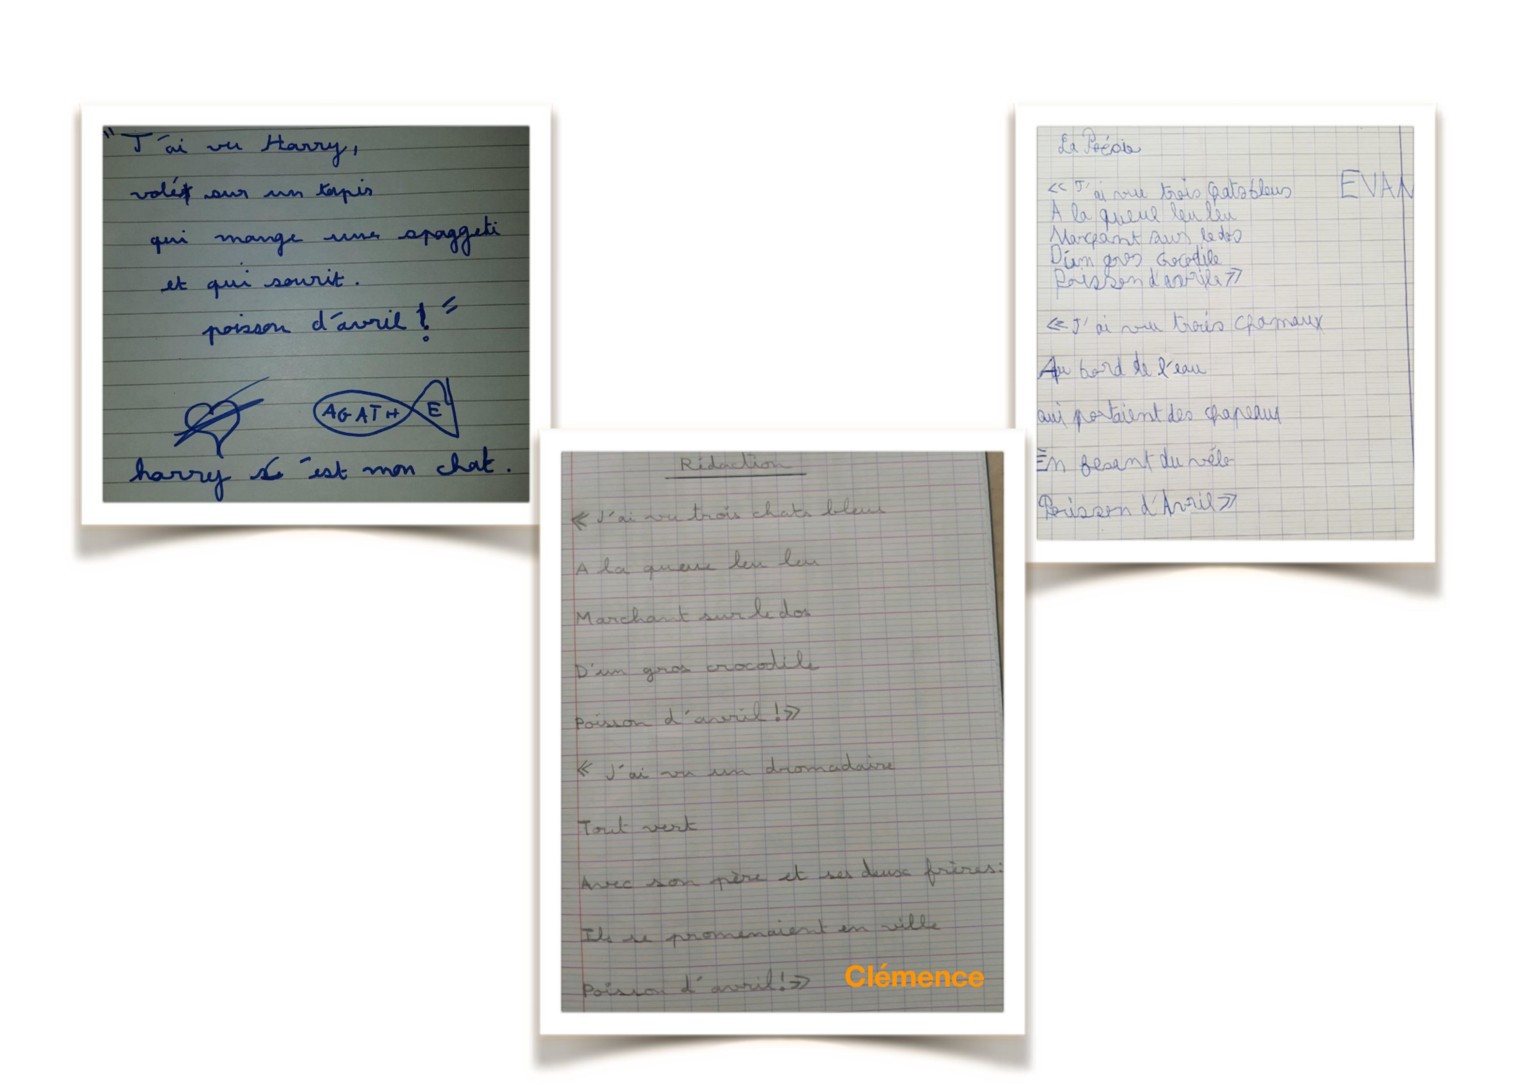 "J'ai vu Harry,
volé sur un tapis
qui mange une spaggeti
et qui sourit.
poisson d'avril ! "
AGATHE
harry s'est mon chat.
Rédaction
« J'ai vu trois chats bleus
A la queue leu leu
Marchant sur le dos
D'un gros crocodile
Poisson d'avril !»
« J'ai vu un dromadaire
Tout vert
Avec son père et ses deux frères:
Ils se promenaient en ville
Poisson d'avril !»
Clémence
La Poésie
EVAN
« J'ai vu trois chats bleus
A la queue leu leu
Marchant sur le dos
D'un gros crocodile
Poisson d'avrile »
« J'ai vu trois chameaux
Au bord de l'eau
qui portaient des chapeaux
En fesant du vélo
Poisson d'Avril »